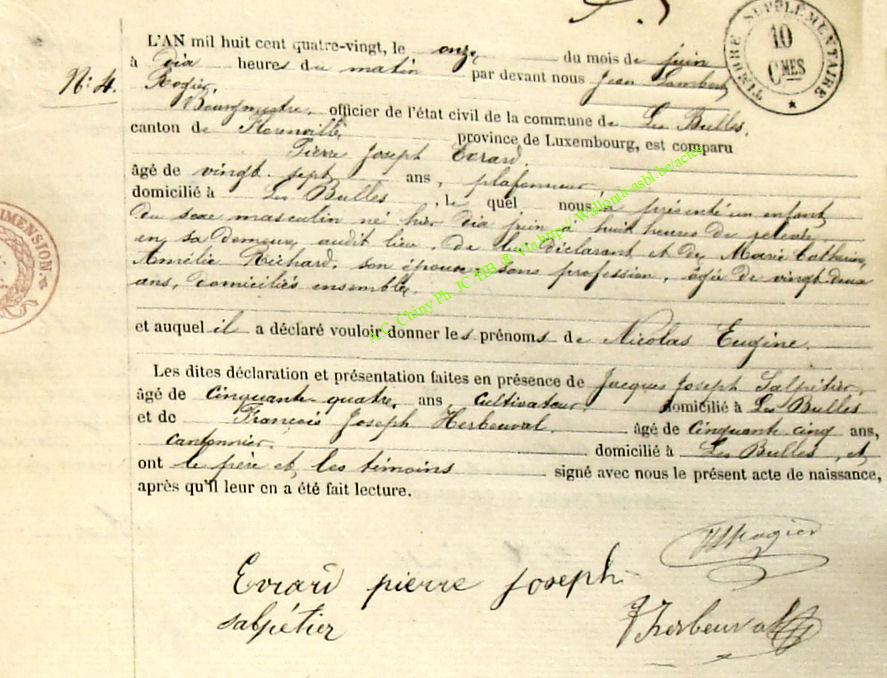 TIMBRE SUPPLÉMENTAIRE
10
CMES
L'AN mil huit cent quatre-vingt, le onze du mois de juin
à dix heures du matin par devant nous Jean Lambert
N° 4.
Rogier,
Bourgmestre, officier de l'état civil de la commune de Les Bulles,
canton de Florenville province de Luxembourg, est comparu
Pierre Joseph Evrard
âgé de vingt-sept ans, plafonneur,
domicilié à Les Bulles, le quel nous a présenté un enfant
du sexe masculin né hier dix juin à huit heures de relevée,
en sa demeure, audit lieu, de lui déclarant et de Marie Catherine
Amélie Richard, son épouse, sans profession, âgée de vingt-deux
ans, domiciliés ensemble,
DIMENSION
et auquel il a déclaré vouloir donner les prénoms de Nicolas Eugène.
Les dites déclaration et présentation faites en présence de Jacques Joseph Salpétier,
âgé de cinquante-quatre, ans, cultivateur, domicilié à Les Bulles
et de François Joseph Herbeuval âgé de cinquante cinq ans,
cantonnier, domicilié à Les Bulles, et
ont le père et les témoins signé avec nous le présent acte de naissance,
après qu'il leur en a été fait lecture.
Rogier
Evrard pierre joseph
salpétier
Herbeuval